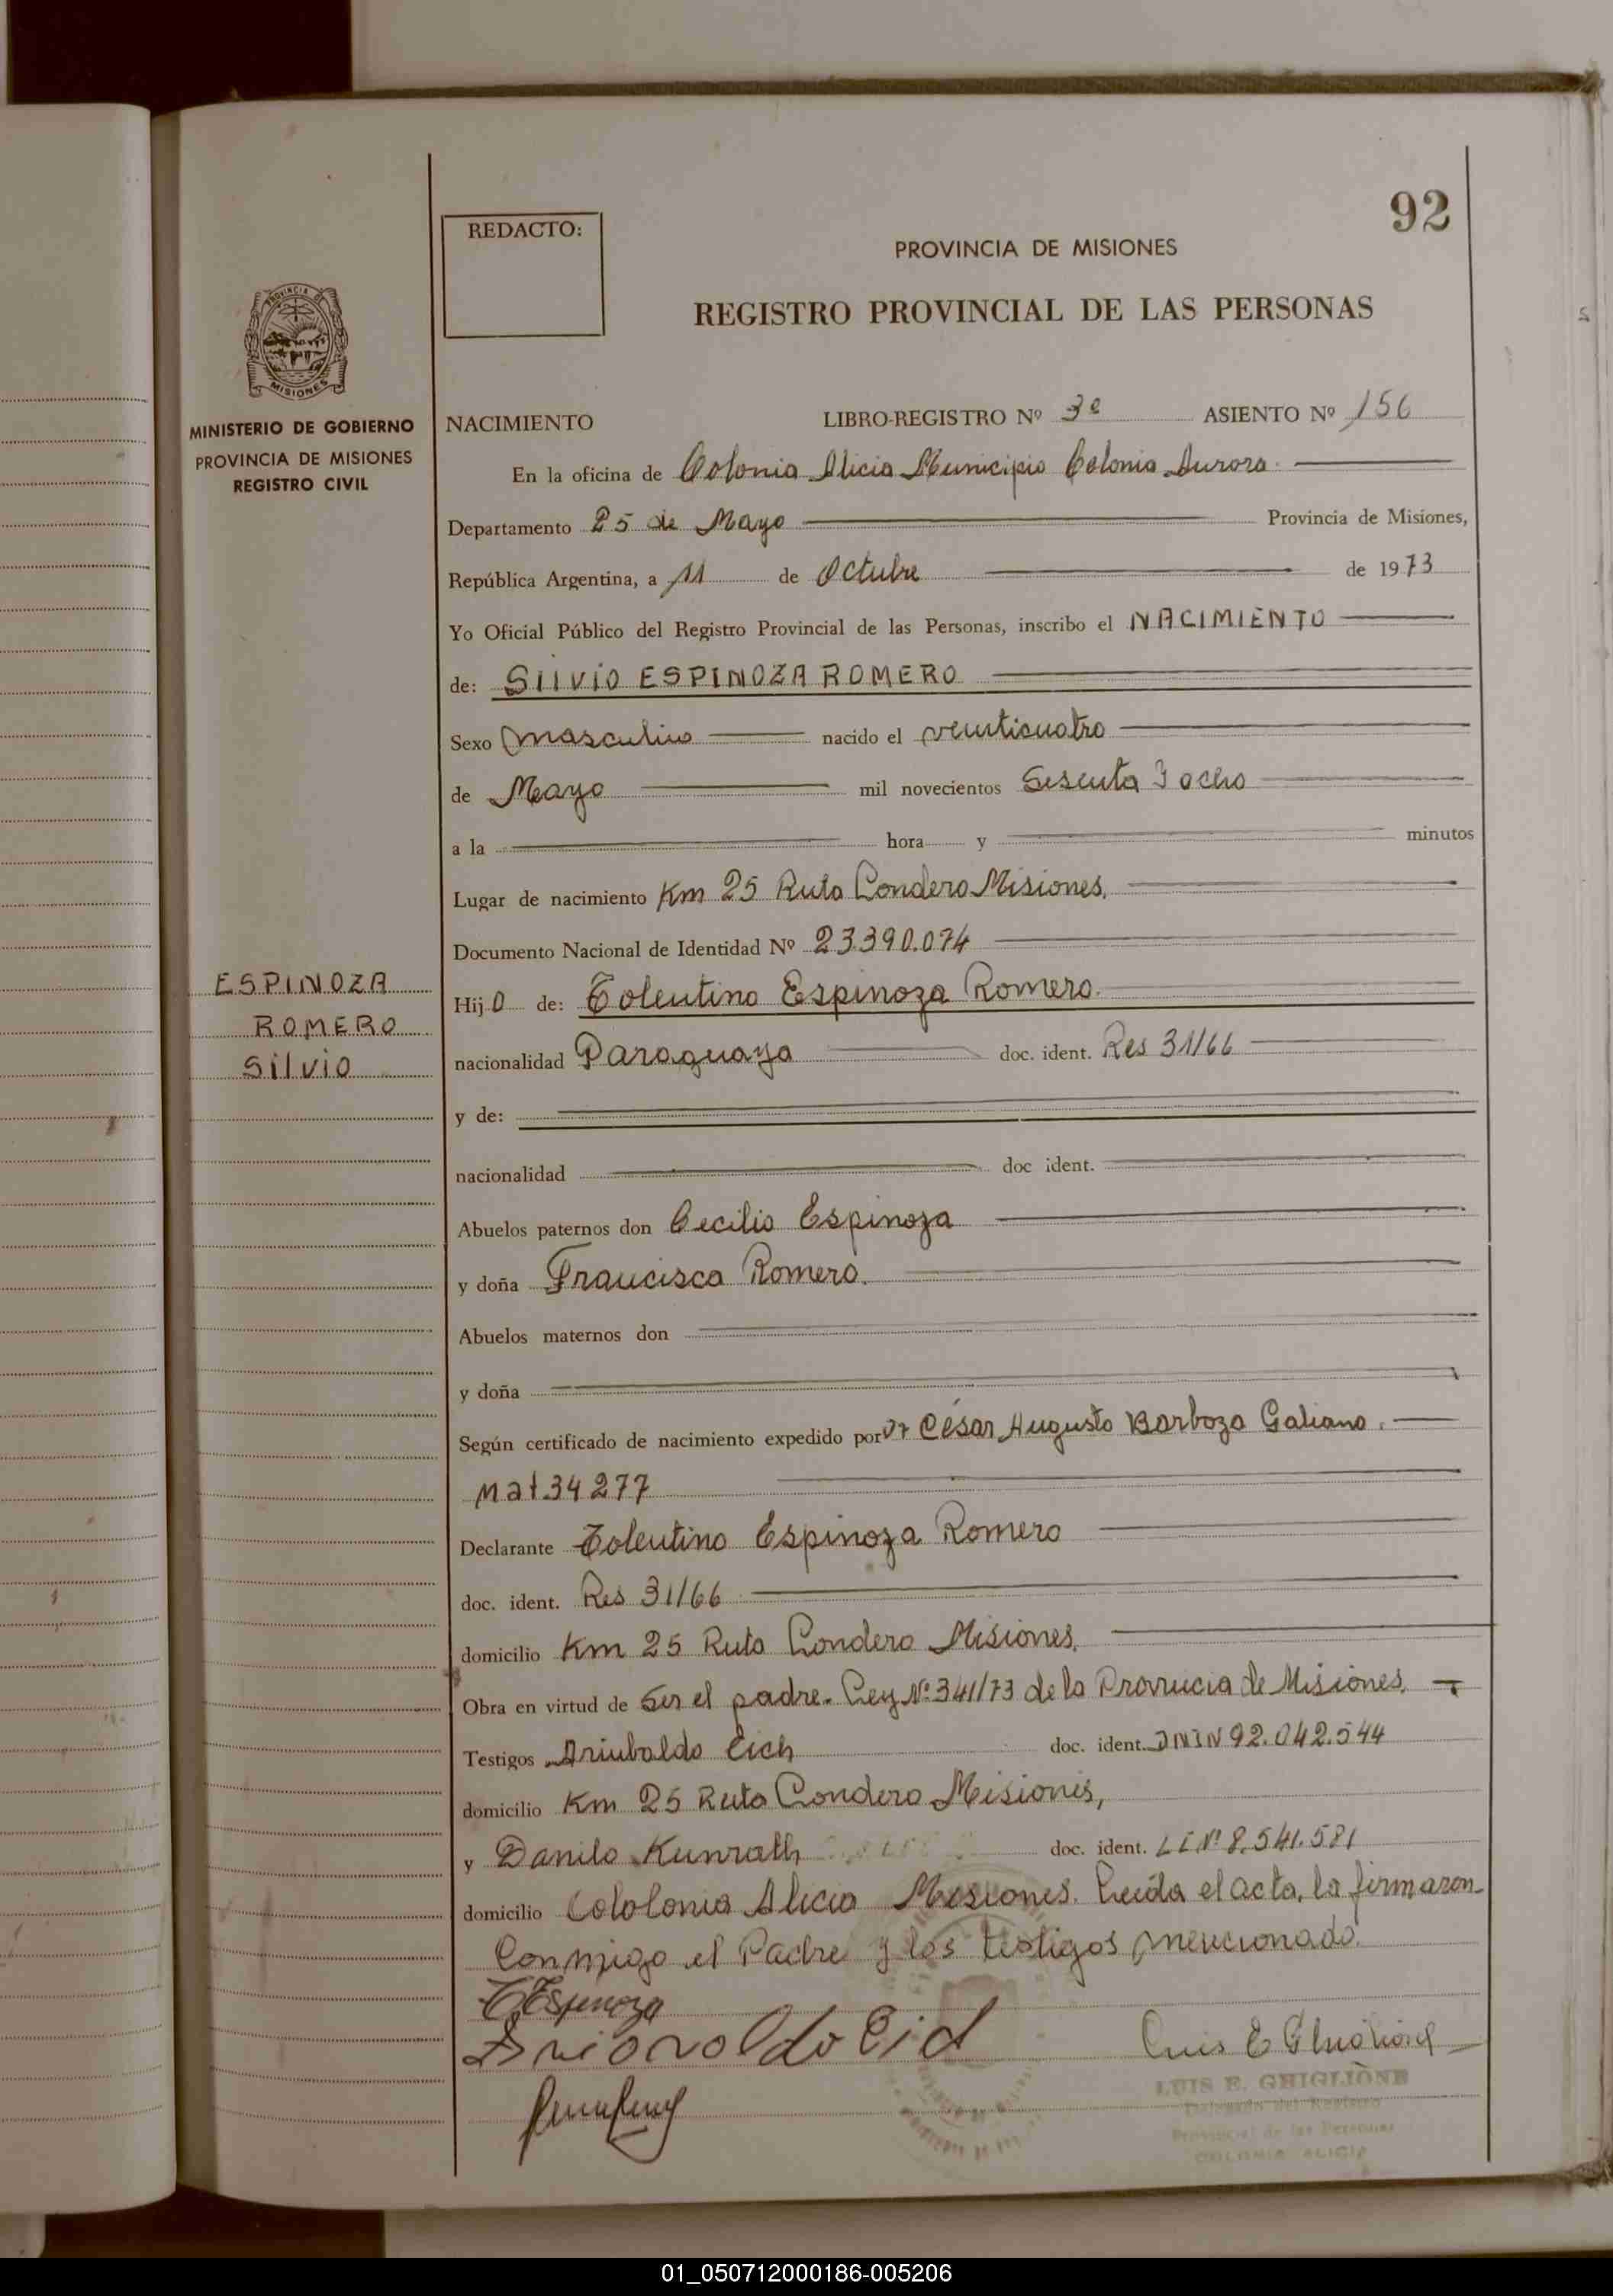 92
REDACTO:
PROVINCIA DE MISIONES
REGISTRO PROVINCIAL DE LAS PERSONAS
PROVINCIA DE
MISIONES
MINISTERIO DE GOBIERNO
PROVINCIA DE MISIONES
REGISTRO CIVIL
NACIMIENTO LIBRO-REGISTRO Nº 3º ASIENTO Nº 156
En la oficina de Colonia Alicia Municipio Colonia Aurora.
Departamento 25 de Mayo Provincia de Misiones,
República Argentina, a 11 de Octubre de 1973
Yo Oficial Público del Registro Provincial de las Personas, inscribo el NACIMIENTO
de: SIlVIO ESPINOZA ROMERO
Sexo masculino nacido el veinticuatro
de Mayo mil novecientos Sesenta y ocho
a la hora y minutos
Lugar de nacimiento Km 25 Ruta Londero Misiones,
Documento Nacional de Identidad Nº 23.390.074
ESPINOZA
ROMERO
Silvio
Hijo de: Tolentino Espinoza Romero.
nacionalidad Paraguaya doc. ident. Res 31/66
y de:
nacionalidad doc ident.
Abuelos paternos don Cecilio Espinoza
y doña Francisca Romero.
Abuelos maternos don
y doña
Según certificado de nacimiento expedido por Dr César Augusto Barboza Galiano.
Mat 34277
Declarante Tolentino Espinoza Romero
doc. ident. Res 31/66
domicilio Km 25 Ruta Londero Misiones,
Obra en virtud de Ser el padre. Ley Nº 341/73 de la Provincia de Misiones.
Testigos Arinbaldo Eich doc. ident. DNIN 92.042.544
domicilio Km 25 Ruta Londero Misiones,
y Danilo Kunrath doc. ident. LE Nº 8.541.581
domicilio Cololonia Alicia Misiones. Leída el acta, la firmaron
Conmigo el Padre y los testigos mencionado.
T Espinoza
LUIS E. GHIGLIONE
Delegado del Registro
Provincial de las Personas
COLONIA ALICIA
01_050712000186-005206